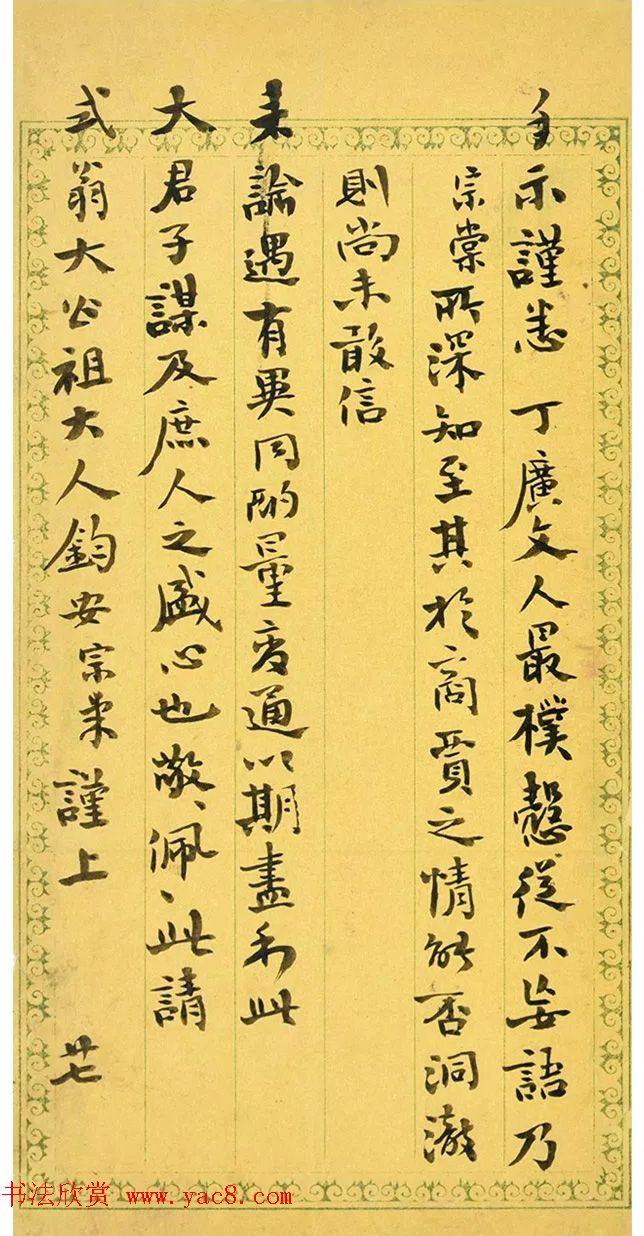 手示謹悉 丁廣文人最樸愨從不妄語乃
宗棠所深知至其於商賈之情能否洞澈
則尚未敢信
来論遇有異同酌量變通以期盡利此
大君子謀及庶人之盛心也敬、佩、此請
式翁大公祖大人鈞安宗棠謹上 廿七
书法欣赏 www.yac8.com